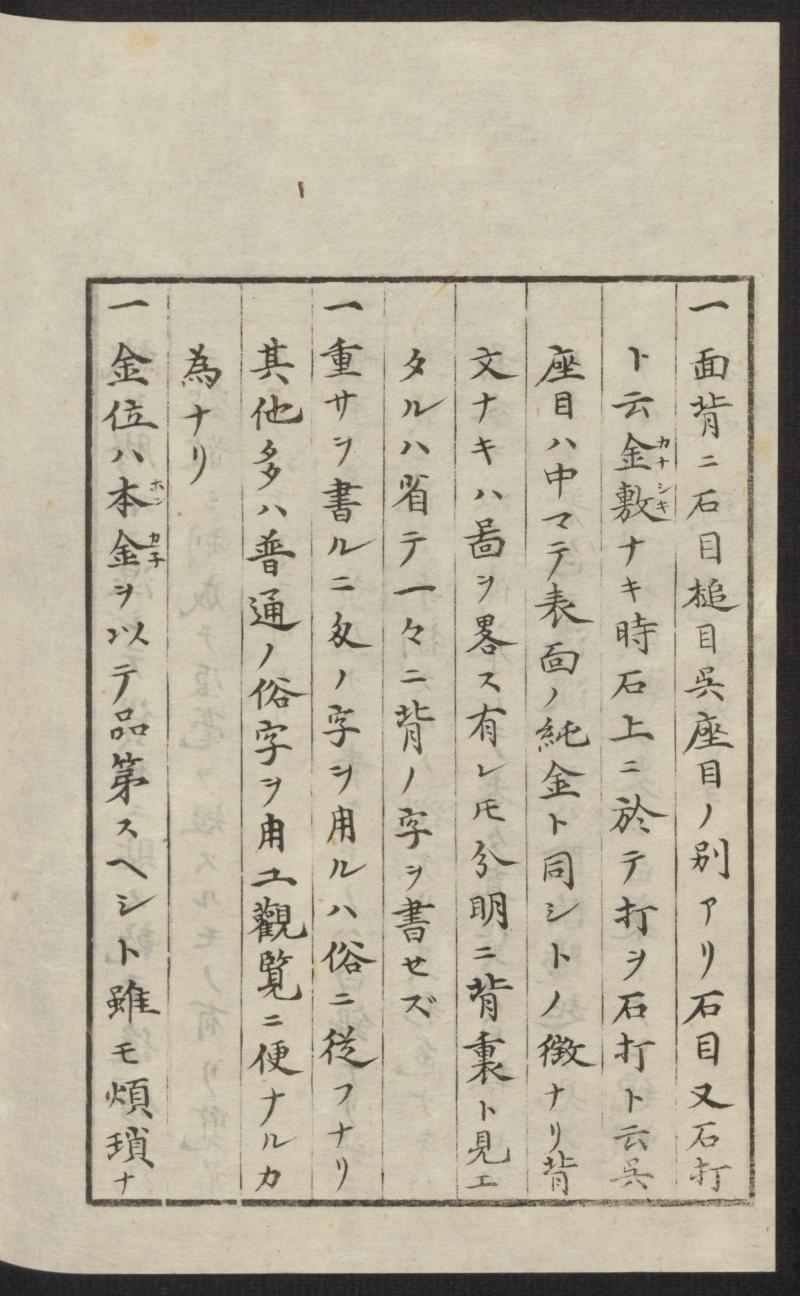 一面背ニ石目槌目呉座目ノ別アリ石目又石打
ト云金敷ナキ時石上ニ於テ打ヲ石打ト云呉
カナシキ
座目ハ中マテ表面ノ純金ト同シトノ徴ナリ背
文ナキハ啚ヲ畧ス有レ𪜈分明ニ背裏ト見エ
タルハ省テ一々ニ背ノ字ヲ書セズ
一重サヲ書ルニ匁ノ字ヲ用ルハ俗ニ従フナリ
其他多ハ普通ノ俗字ヲ用ユ觀覽ニ便ナルカ
為ナリ
一金位ハ本金ヲ以テ品第スヘシト雖モ煩瑣ナ
ホンカネ